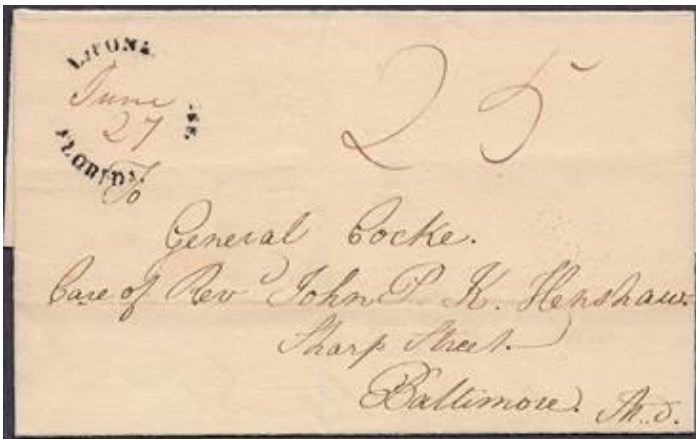 LIPONA
June
27
FLORIDA.
25
To
General Cocke.
Care of Revd John P. K. Henshaw.
Sharp Street
Baltimore. Md.